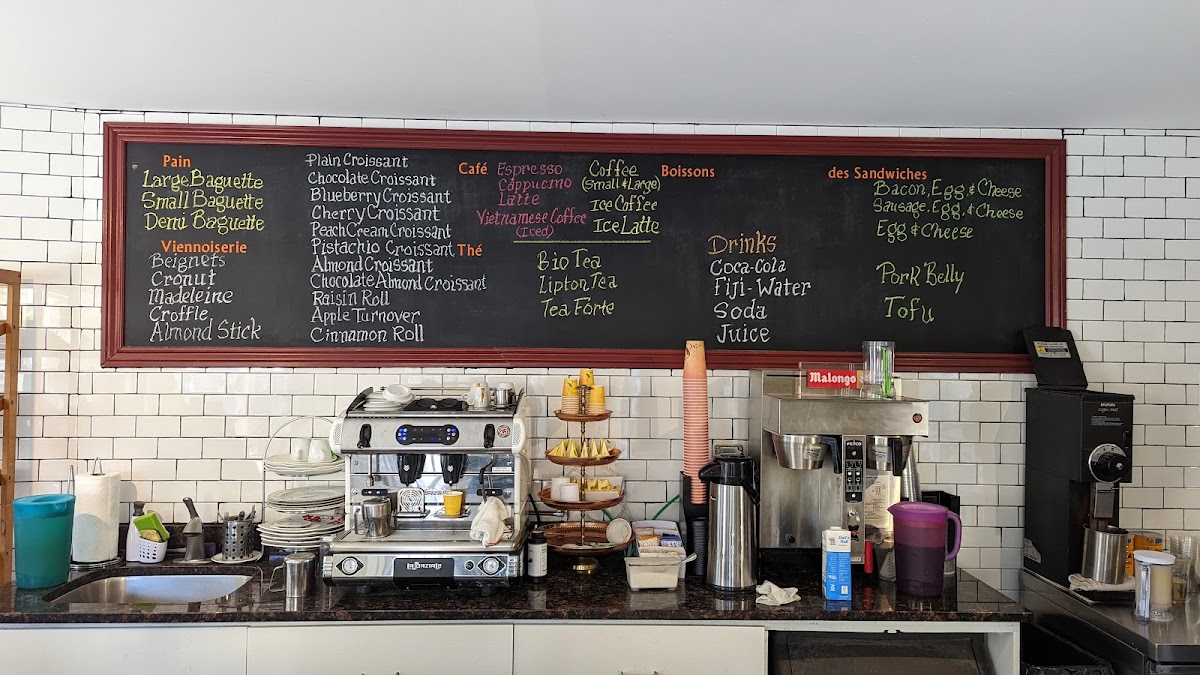 Pain
Large Baguette
Small Baguette
Demi Baguette
Viennoiserie
Beignets
Cronut
Madeleine
Croffle
Almond Stick
Plain Croissant
Chocolate Croissant
Blueberry Croissant
Cherry Croissant
Peach Cream Croissant
Pistachio Croissant
Almond Croissant
Chocolate Almond Croissant
Raisin Roll
Apple Turnover
Cinnamon Roll
Café
Espresso
Cappucino
Latte
Vietnamese Coffee
(Iced)
Coffee
(Small & Large)
Ice Coffee
Ice Latte
Thé
Bio Tea
Lipton Tea
Tea Forte
Boissons
Drinks
Coca-Cola
Fiji-Water
Soda
Juice
des Sandwiches
Bacon, Egg & Cheese
Sausage, Egg, & Cheese
Egg & Cheese
Pork Belly
Tofu
Malongo
FETCO
LA SPAZIALE
Half & Half